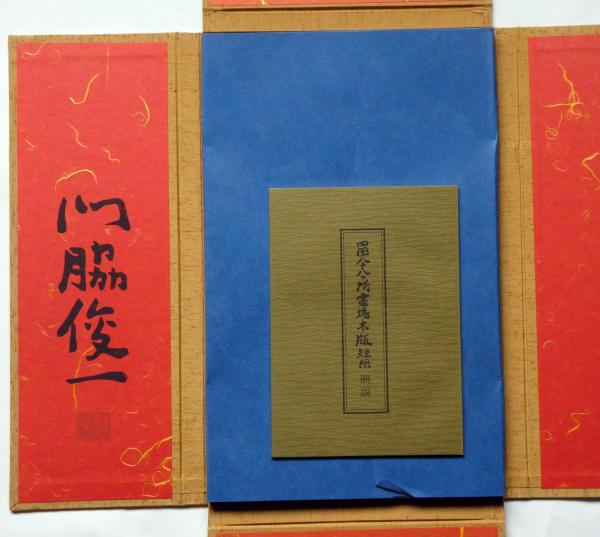 門脇俊一
四国八十八ヶ所霊場木版短冊 解説